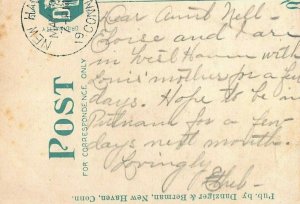 Dear Aunt Nell-
Eloise and I are
in West Haven with
Louis' mother for a few
days. Hope to be in
Putnam for a few
days next month.
Lovingly
Ethel-
POST
FOR CORRESPONDENCE ONLY
NEW HA
CONN
19
Pub. by Danziger & Berman, New Haven, Conn.